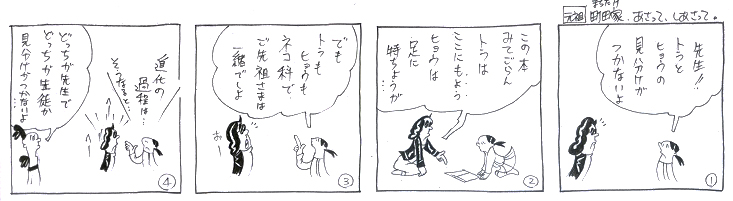 元祖
まちだけ
町田家、あさって、しあさって。
先生!!
トラと
ヒョウの
見分けが
つかないよ
①
この本
みてごらん
ここにもよう
トラは
ヒョウは
足に
持ちようが
②
でも
トラも
ヒョウも
ネコ科で
ご先祖さまは
一緒でしょ
お〜
③
進化の
過程は…
そうなると…
どっちが先生で
どっちが生徒か
見分けがつかないよ
④